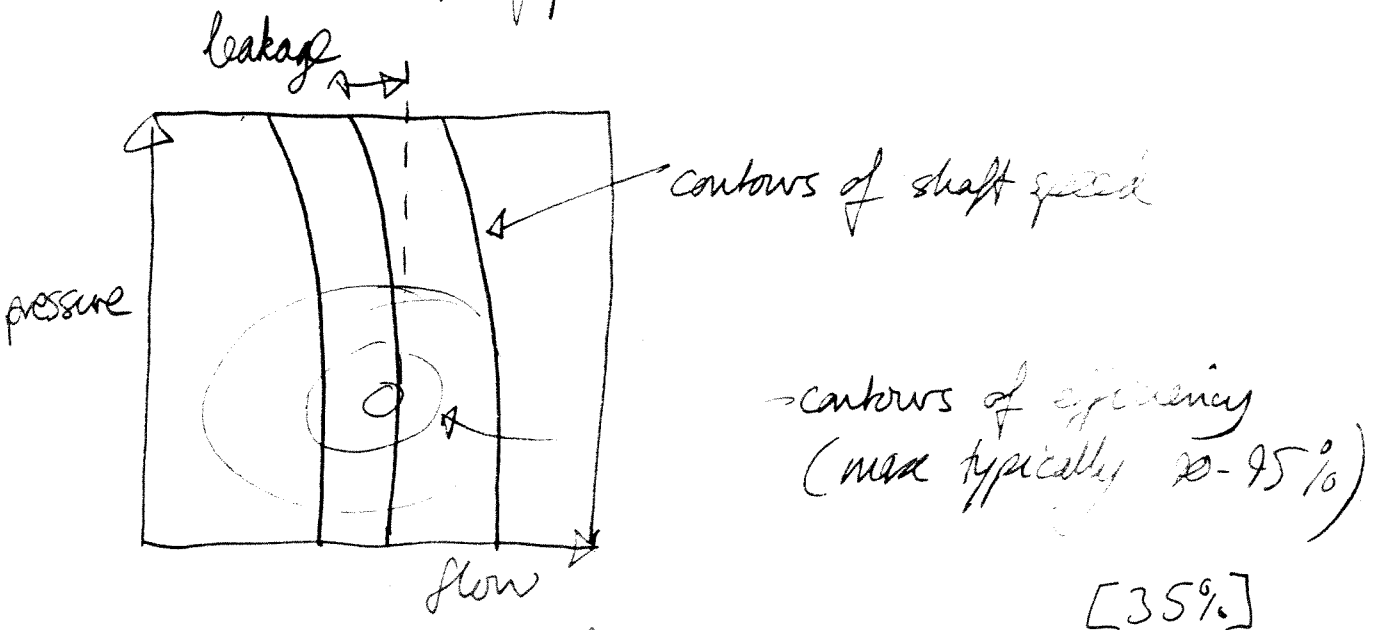 leakage
contours of shaft speed
pressure
contours of efficiency
(max typically 90-95%)
flow
[35%]